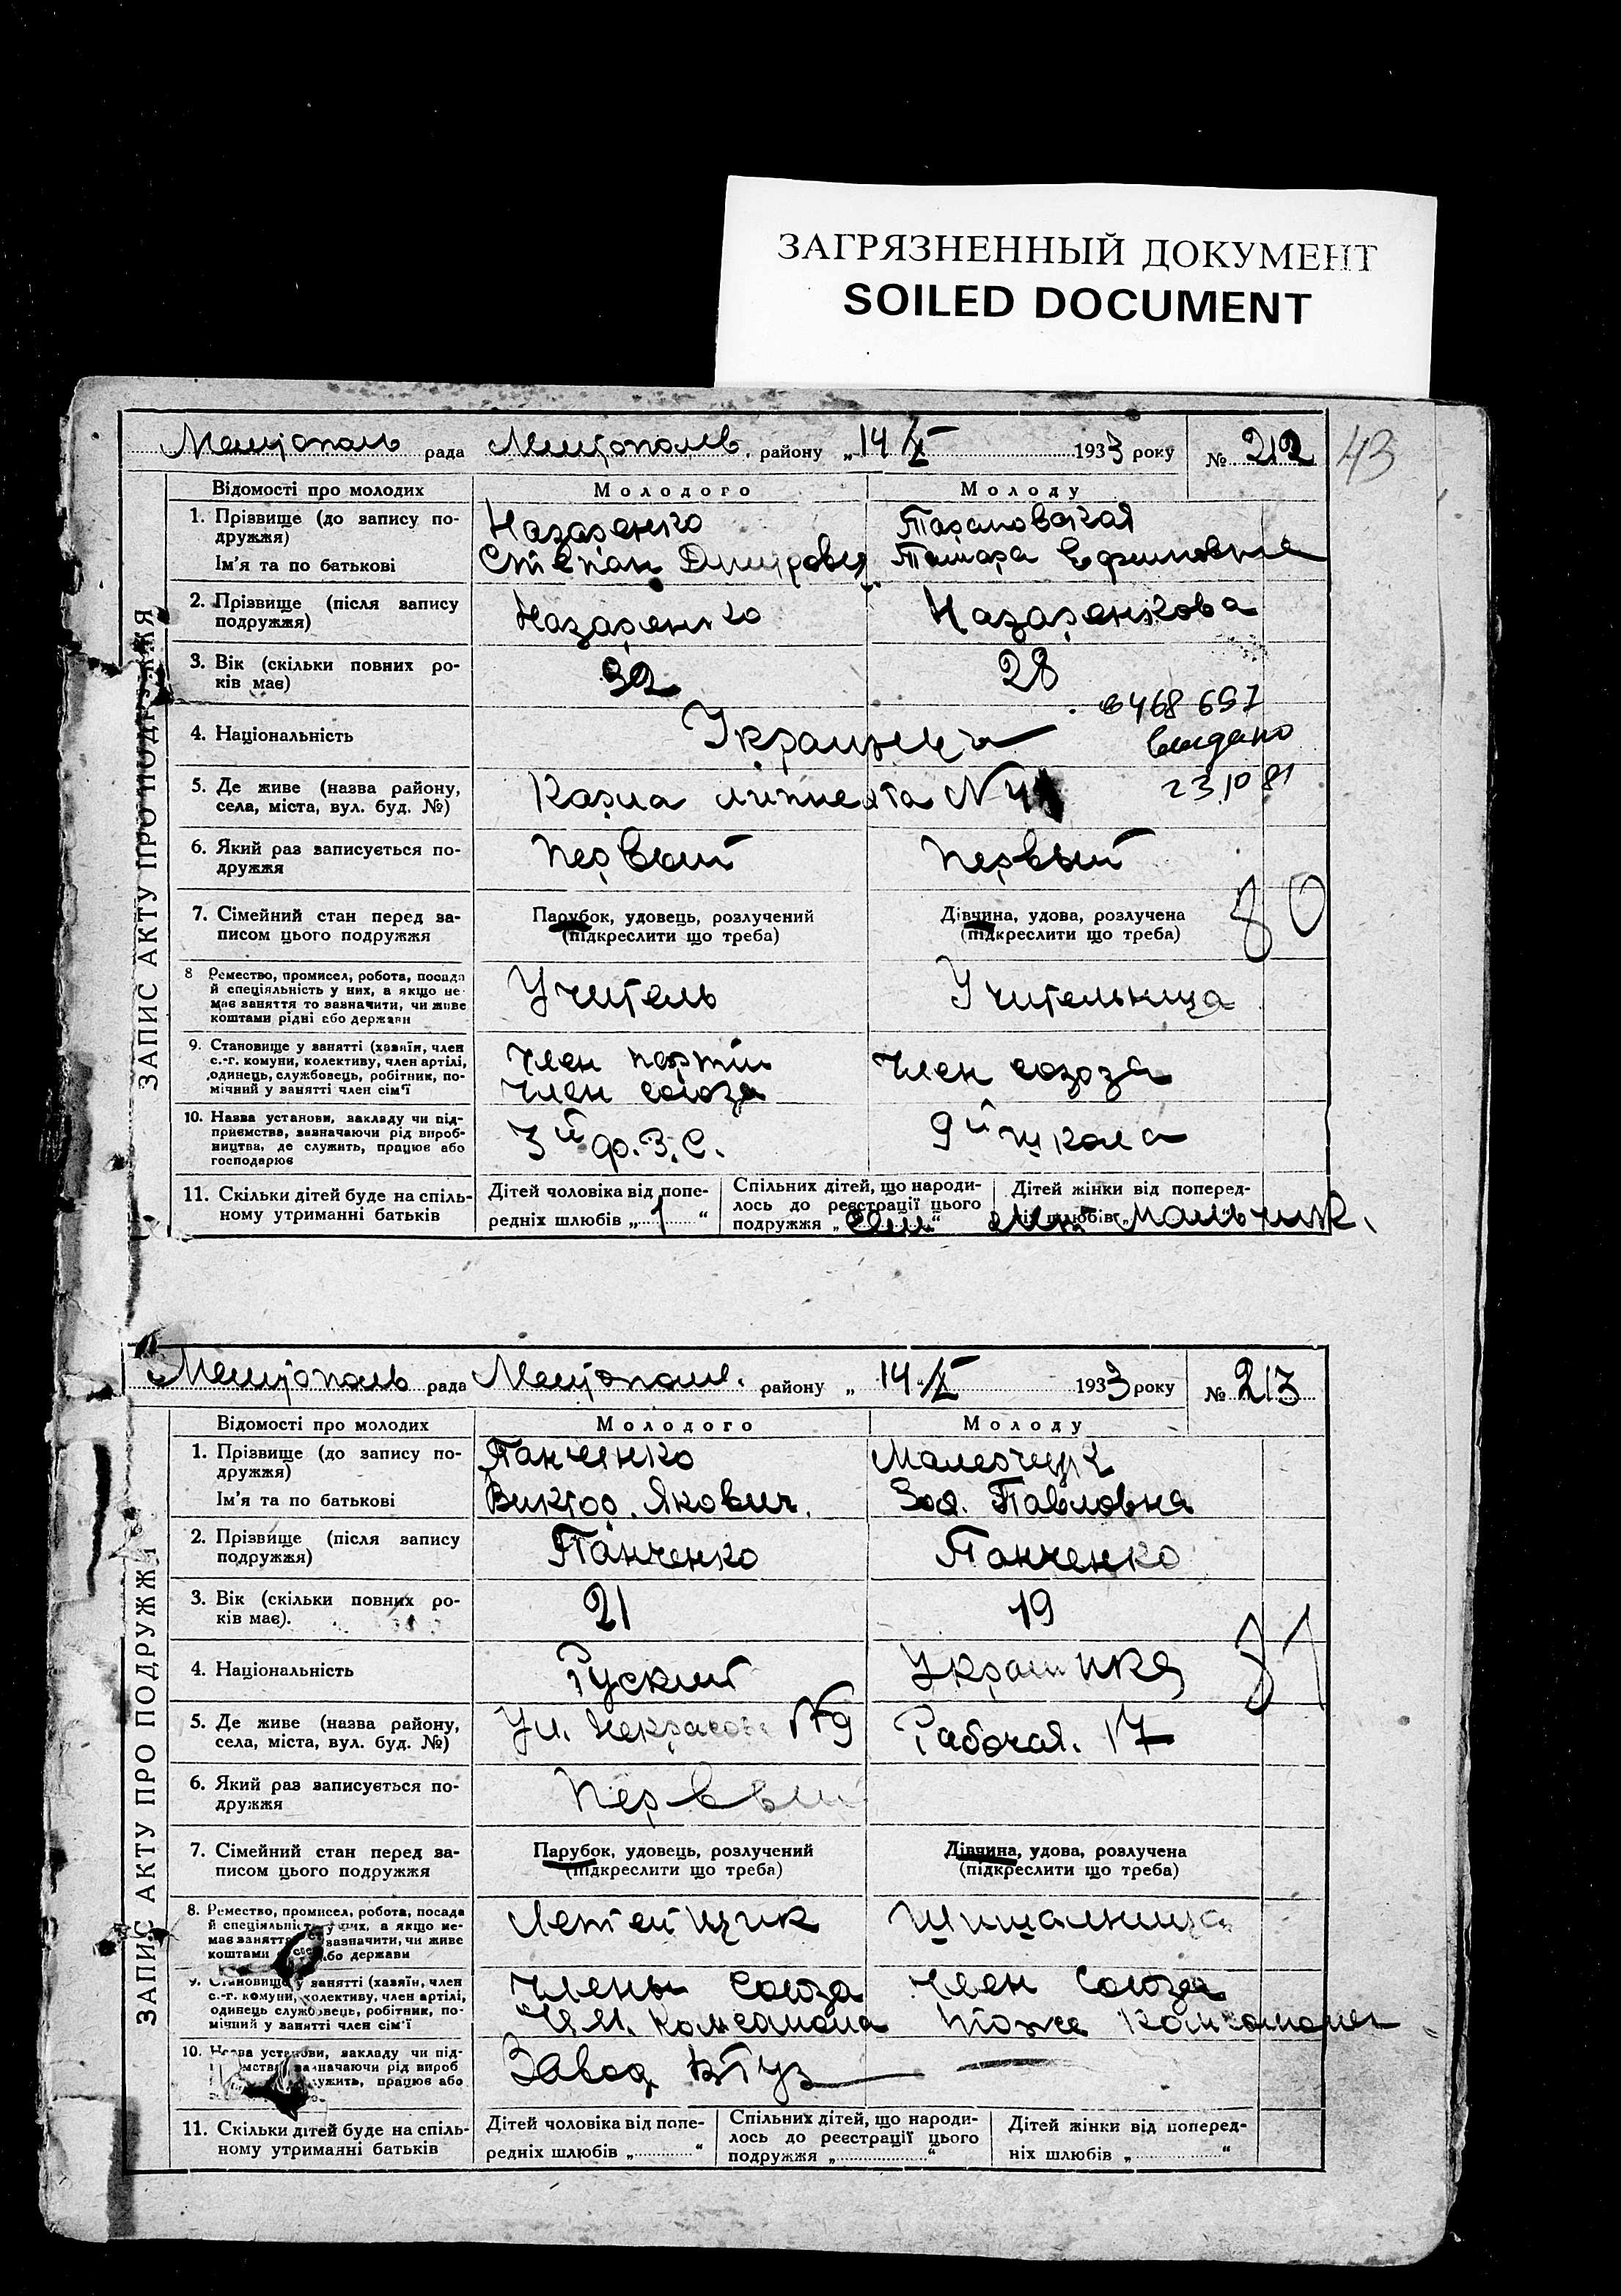 ЗАГРЯЗНЕННЫЙ ДОКУМЕНТ
SOILED DOCUMENT
43
Мелітополь рада Мелітополів. району „14 X 1933 року № 212
ЗАПИС АКТУ ПРО ПОДРУЖЖЯ
Відомості про молодих Молодого Молоду
1. Прізвище (до запису по-
дружжя) Назаренко Тарановская
Ім'я та по батькові Степан Дмитрович Тамара Ефимовна
2. Прізвище (після запису
подружжя) Назаренко Назаренкова
3. Вік (скільки повних ро-
ків має) 32 28
6468 697
4. Національність Украинцы видано
23.10 81
5. Де живе (назва району,
села, міста, вул. буд. №) Карла липнехта N 41
6. Який раз записується по-
дружжя Первый Первый
7. Сімейний стан перед за-
писом цього подружжя
Парубок, удовець, розлучений
(підкреслити що треба)
Дівчина, удова, розлучена
(підкреслити що треба)
80
8 Ремество, промисел, робота, посада
й спеціяльність у них, а якщо не-
має заняття то зазначити, чи живе
коштами рідні або держави
Учитель Учительница
9. Становище у занятті (хазяїн, член
с.-г. комуни, колективу, член артілі,
одинець, службовець, робітник, по-
мічний у занятті член сім'ї
Член партии
Член союза
Член союза
10. Назва установи, закладу чи під-
приємства, зазначаючи рід вироб-
ництва, де служить, працює або
господарює
3й ф.З.С. 9й школа
11. Скільки дітей буде на спіль-
ному утриманні батьків
Дітей чоловіка від попе-
редніх шлюбів „ 1 “
Спільних дітей, що народи-
лось до реєстрації цього
подружжя „ “
Дітей жінки від поперед-
ніх шлюбів „ “
мальчик.
Мелітополь рада Мелітополів. району „ 14 X 1933 року № 213
ЗАПИС АКТУ ПРО ПОДРУЖЖЯ
Відомості про молодих Молодого Молоду
1. Прізвище (до запису по-
дружжя) Панченко
Ім'я та по батькові Виктор. Якович. Зоя. Павловна
2. Прізвище (після запису
подружжя) Панченко Панченко
3. Вік (скільки повних ро-
ків має). 21 19
4. Національність Руский Украинка
81
5. Де живе (назва району,
села, міста, вул. буд. №) Ул. Некрасова №9 Рабочая. 17
6. Який раз записується по-
дружжя Первый
7. Сімейний стан перед за-
писом цього подружжя
Парубок, удовець, розлучений
(підкреслити що треба)
Дівчина, удова, розлучена
(підкреслити що треба)
8. Ремество, промисел, робота, посада
й спеціяльність у них, а якщо не-
має заняття зазначити, чи живе
коштами або держави
Летейщик
9. Становище у занятті (хазяїн, член
с.-г. комуни, колективу, член артілі,
одинець службовець, робітник, по-
мічний у занятті член сім'ї
Члены Союза Член Союза
Комсомола тоже Комсомолец
10. Назва установи, закладу чи під-
зазначаючи рід вироб
служить, працює або
Завод ВТуз —
11. Скільки дітей буде на спіль-
ному утриманні батьків
Дітей чоловіка від попе-
редніх шлюбів „ “
Спільних дітей, що народи-
лось до реєстрації цього
подружжя „ “
Дітей жінки від поперед-
ніх шлюбів „ “